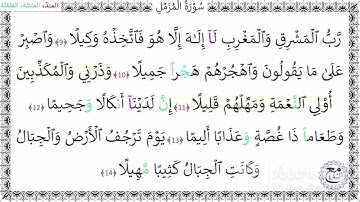 سُورَةُ الْمُزَّمِّل
رَّبُّ الْمَشْرِقِ وَالْمَغْرِبِ لَآ إِلَـٰهَ إِلَّا هُوَ فَاتَّخِذْهُ وَكِيلًا ﴿٩﴾ وَاصْبِرْ
عَلَىٰ مَا يَقُولُونَ وَاهْجُرْهُمْ هَجْرًا جَمِيلًا ﴿١٠﴾ وَذَرْنِي وَالْمُكَذِّبِينَ
أُوْلِي النَّعْمَةِ وَمَهِّلْهُمْ قَلِيلًا ﴿١١﴾ إِنَّ لَدَيْنَآ أَنكَالًا وَجَحِيمًا ﴿١٢﴾
وَطَعَامًا ذَا غُصَّةٍ وَعَذَابًا أَلِيمًا ﴿١٣﴾ يَوْمَ تَرْجُفُ الْأَرْضُ وَالْجِبَالُ
وَكَانَتِ الْجِبَالُ كَثِيبًا مَّهِيلًا ﴿١٤﴾